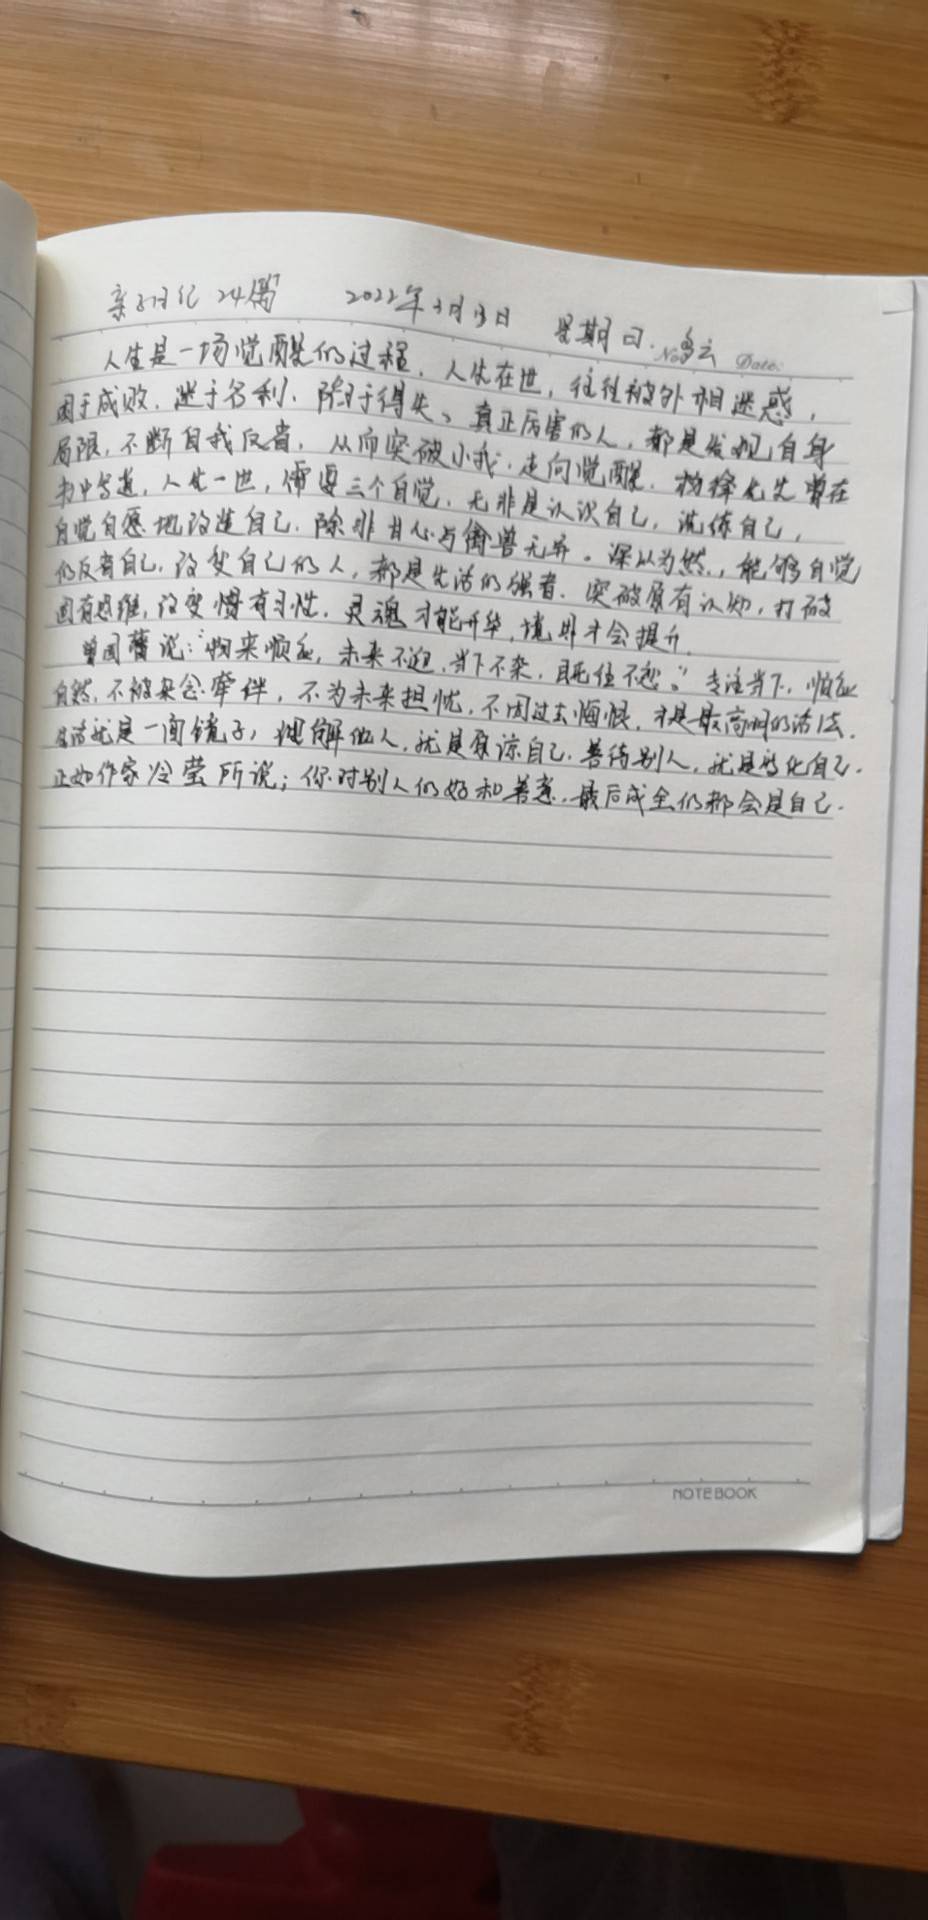 亲子日记 24篇 2022年3月13日 星期日.多云
No. Date.
人生是一场觉醒的过程.人生在世,往往被外相迷惑,
困于成败.迷于名利.陷于得失、真正厉害的人,都是发现自身
局限,不断自我反省,从而突破小我,走向觉醒.杨绛先生曾在
书中写道,人生一世,需要三个自觉.无非是认识自己,洗练自己,
自觉自愿地改造自己.除非甘心与禽兽无异。深以为然.,能够自觉
的反省自己.改变自己的人,都是生活的强者.突破原有认知,打破
固有思维,改变惯有习性.灵魂才能升华,境界才会提升.
曾国藩说:“物来顺应,未来不迎.当下不杂,既往不恋。”专注当下,顺应
自然,不被杂念牵伴,不为未来担忧,不因过去悔恨.才是最高明的活法.
生活就是一面镜子,理解他人,就是原谅自己.善待别人,就是转化自己.
正如作家冷莹所说;你对别人的好和善意,最后成全的都会是自己.
NOTEBOOK